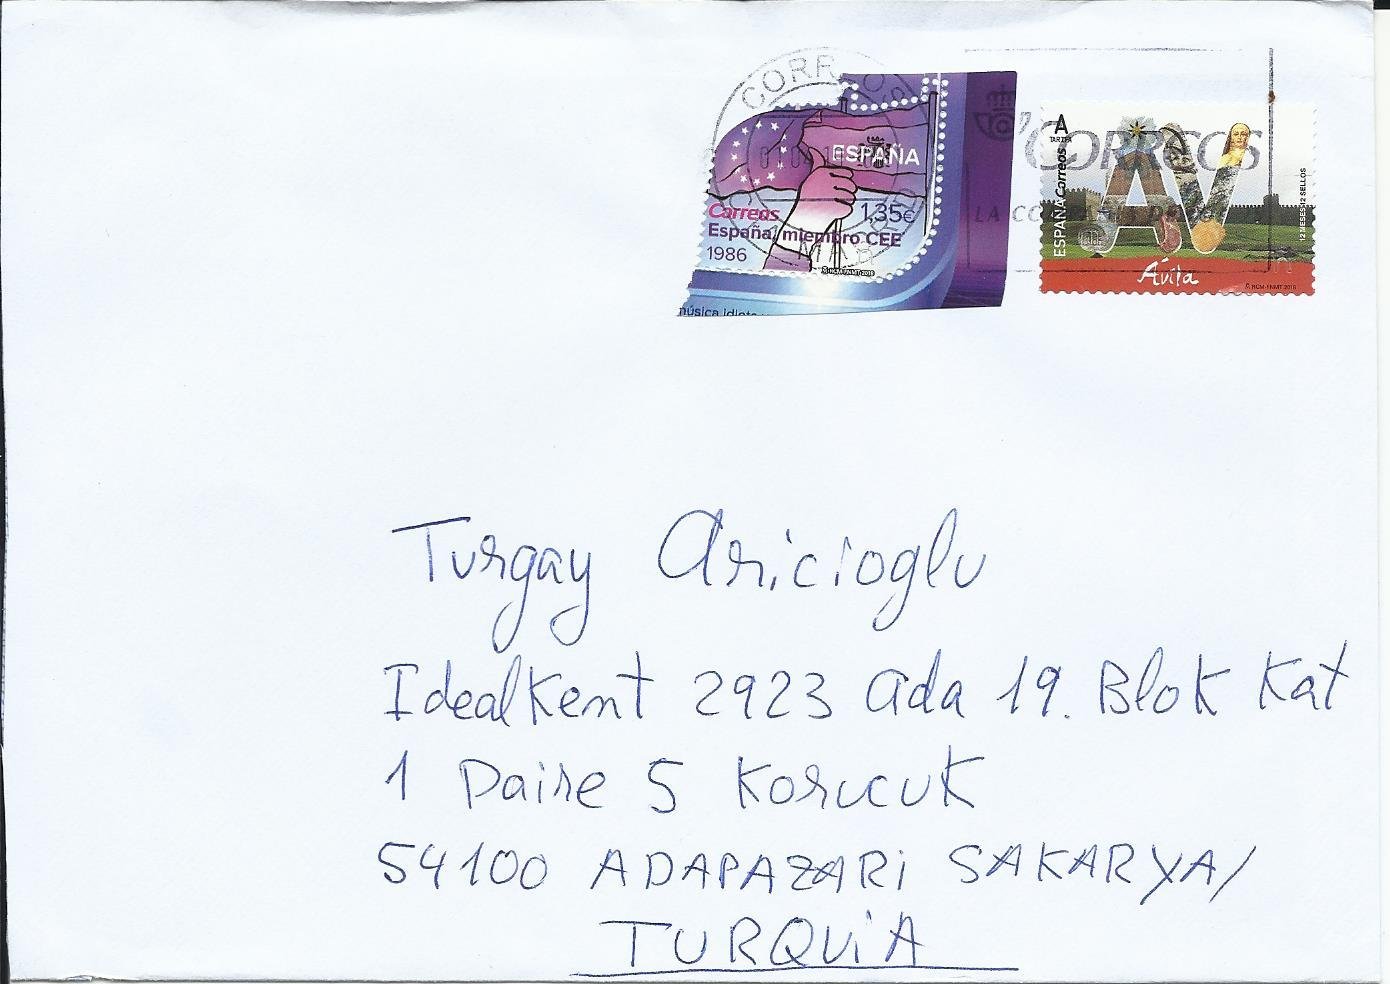 CORREOS
ESPAÑA
Correos 1,35€
España, miembro CEE
1986
música idiota
A
TARIFA
ESPAÑA Correos
CORREOS
AV
Ávila
12 MESES 12 SELLOS
Turgay Aricioglu
IdealKent 2923 ada 19. Blok Kat
1 Daire 5 Korucuk
54100 ADAPAZARi SAKARYA/
TURQUiA